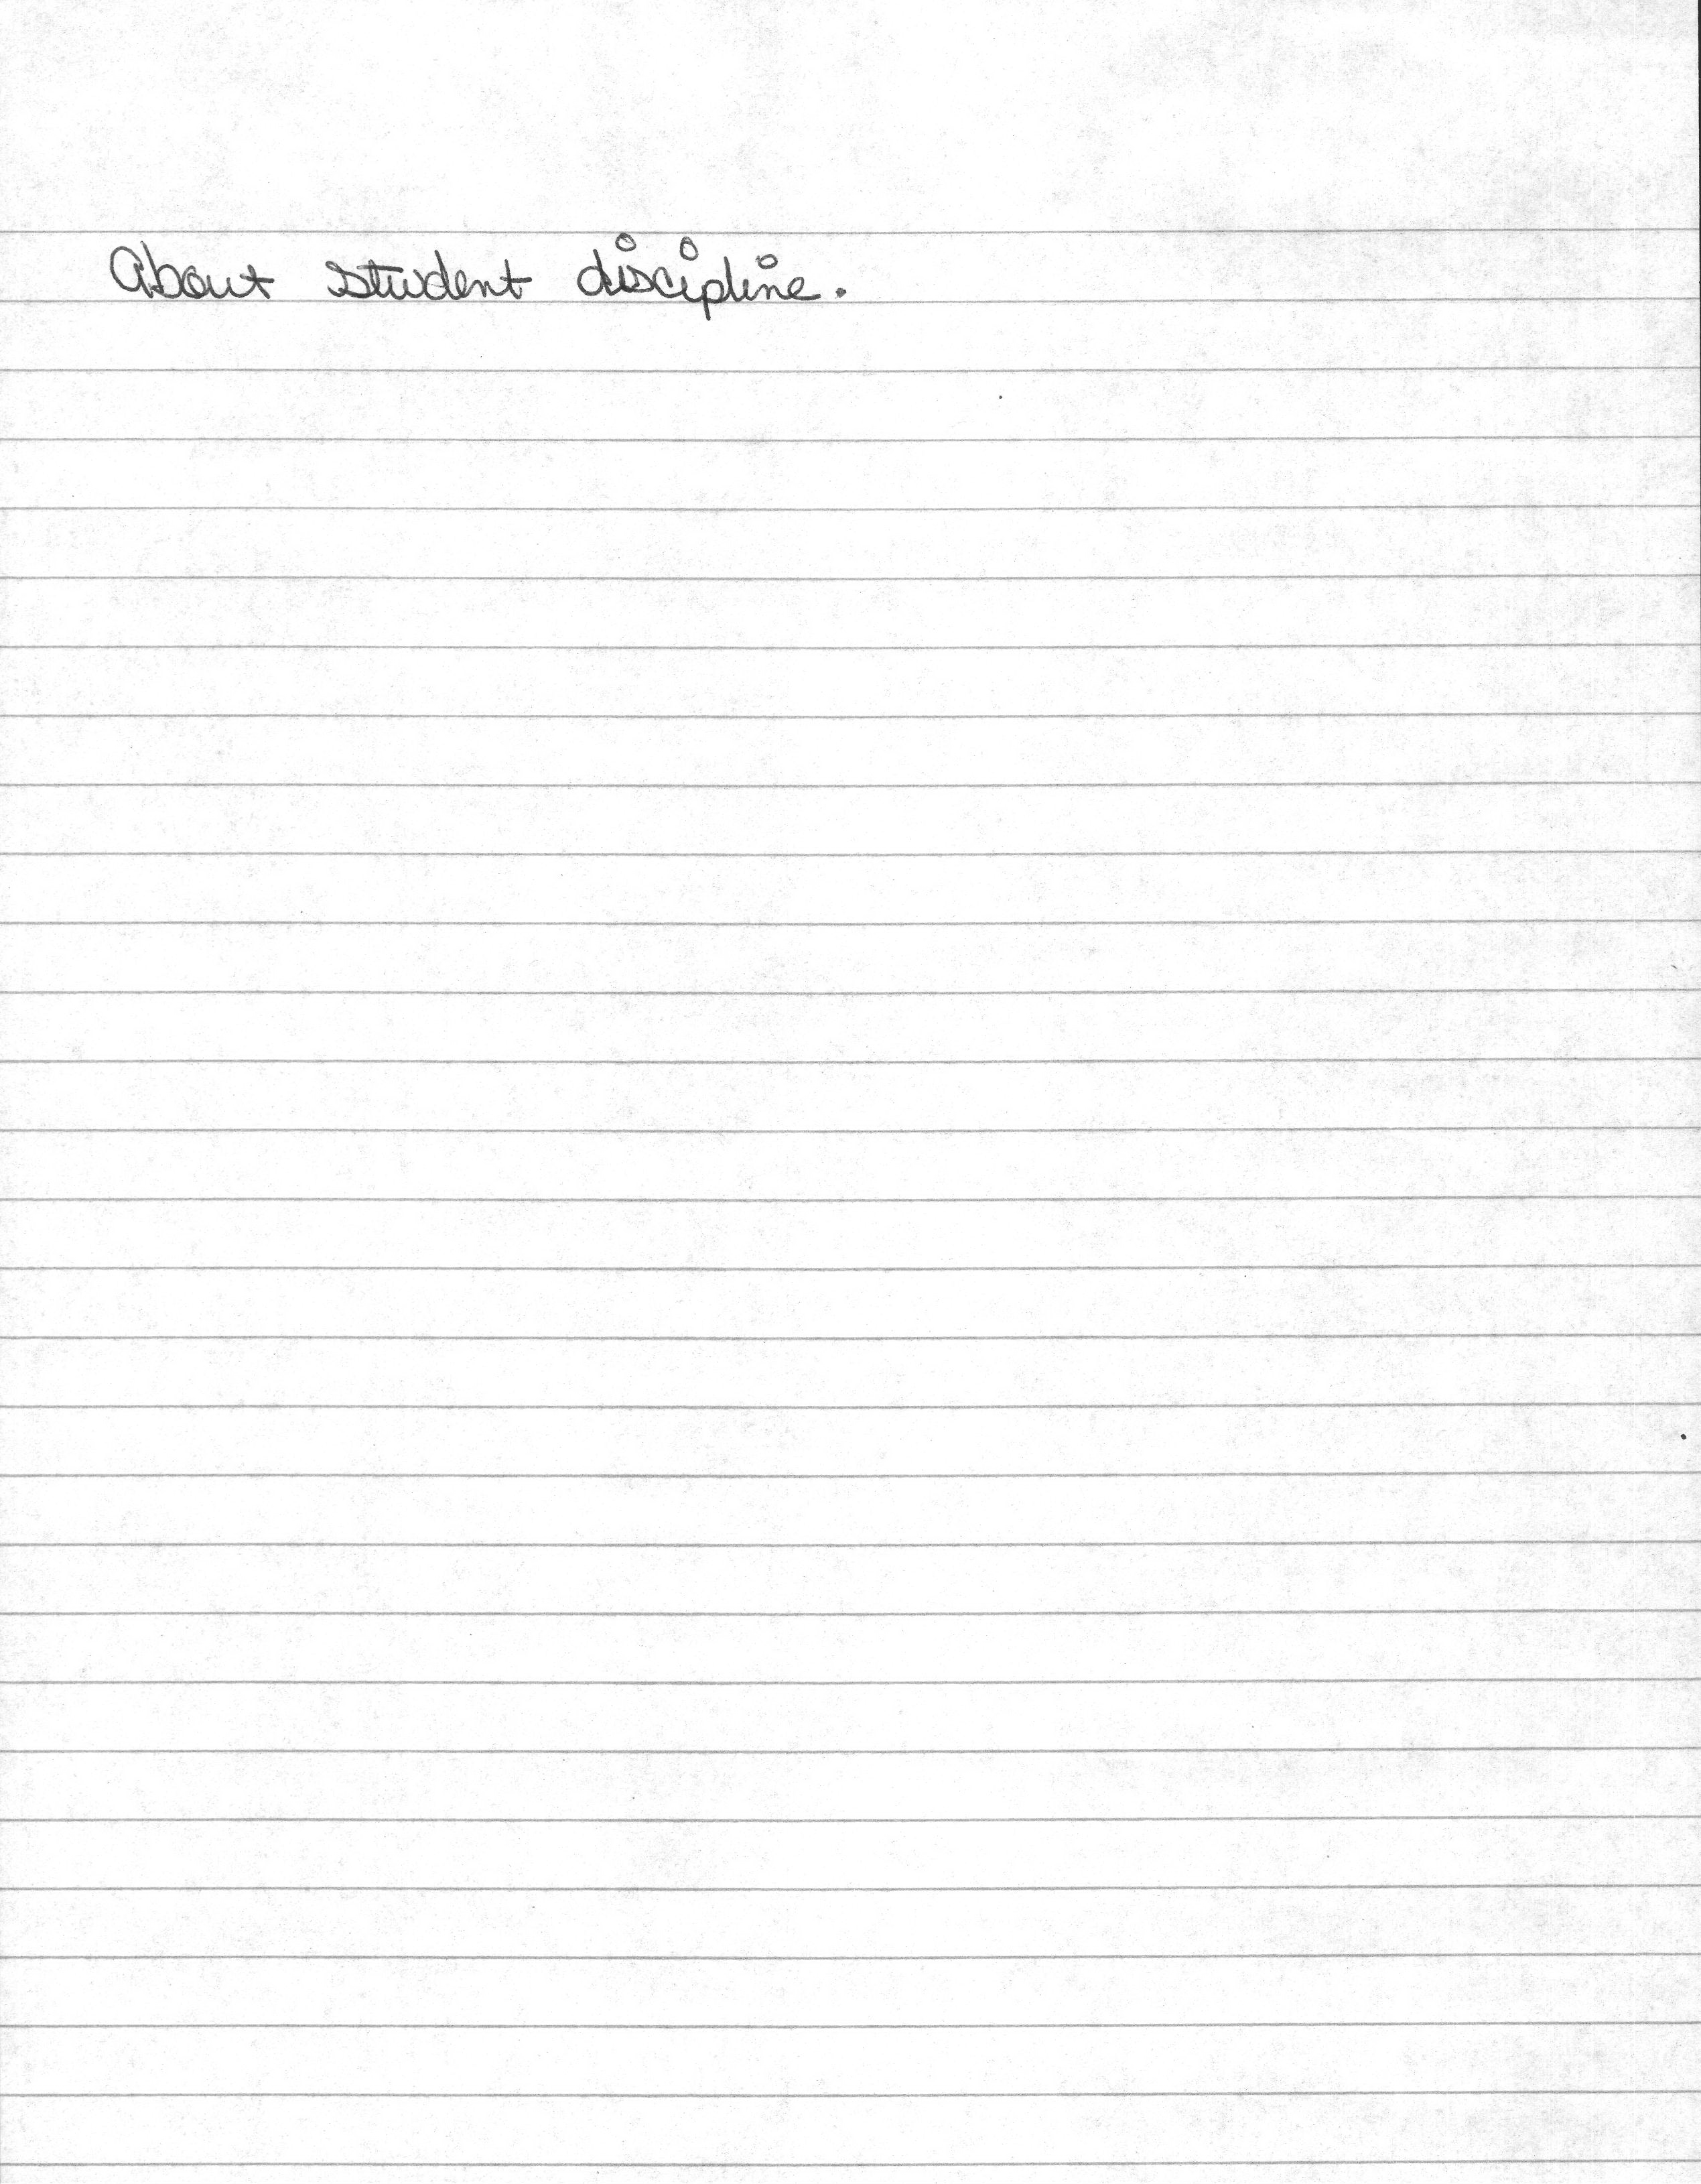 About student discipline.